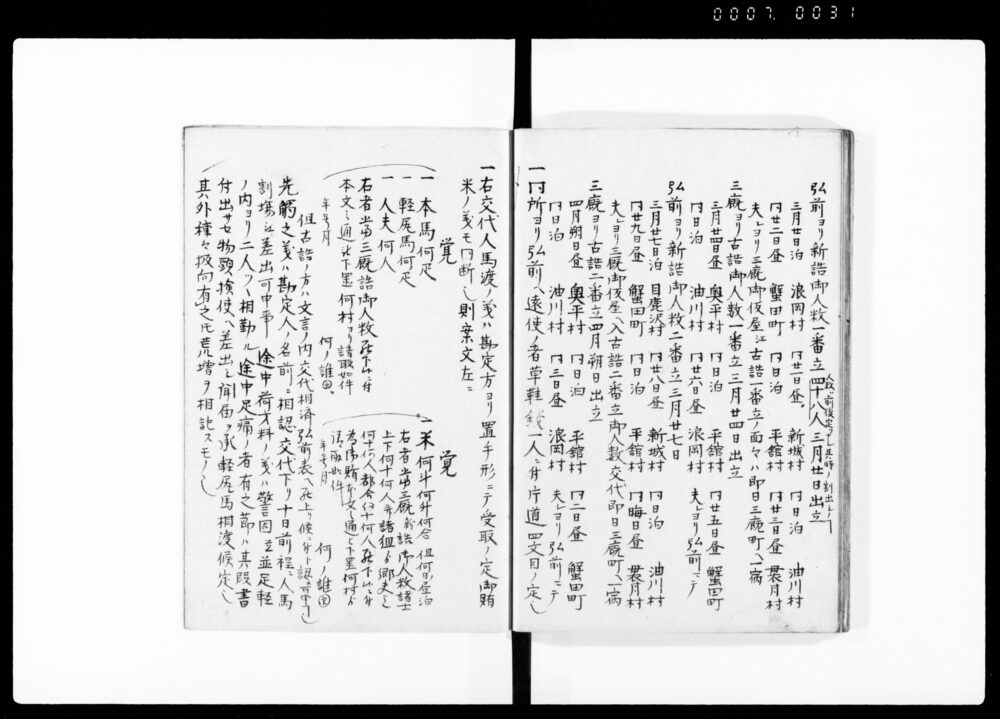 0007 0031
弘前ヨリ新詰御人数一番立四十八人 三月廿日出立
三月廿日泊 浪岡村 同廿一日昼 新城村 同日泊 油川村
同廿二日昼 蟹田町 同日泊 平舘村 同廿三日昼 袰月村
夫レヨリ三厩御仮屋江古詰一番立ノ面々ハ即日三厩町ヘ一宿
三厩ヨリ古詰御人数一番立三月廿四日出立
三月廿四日昼 奥平村 同日泊 平舘村 同廿五日昼 蟹田町
同日泊 油川村 同廿六日昼 浪岡村 夫レヨリ弘前ニテ
弘前ヨリ新詰御人数二番立三月廿七日
三月廿七日泊 目鹿沢村 同廿八日昼 新城村 同日泊 油川村
同廿九日昼 蟹田町 同日泊 平舘村 同晦日昼 袰月村
夫レヨリ三厩御仮屋ヘ入古詰二番立御人数交代即日三厩町ヘ一宿
三厩ヨリ古詰二番立四月朔日出立
四月朔日昼 奥平村 同日泊 平舘村 同二日昼 蟹田町
同日泊 油川村 同三日昼 浪岡村 夫レヨリ弘前ニテ
一同所ヨリ弘前ヘ遠使ノ者草鞋銭一人ニ付片道四文目ノ定
一右交代人馬渡ノ義ハ勘定方ヨリ置手形ニテ受取ノ定御賄
米ノ義モ同断 則案文左ニ
覚
一 本馬何疋
一 軽尻馬何疋
一 人夫何人
右者当三厩詰御人数
本文之通 下置何村ヨリ請取如件
年号月 何ノ誰印
覚
一 米何斗何升何合 但何日昼泊
右者当三厩新詰御人数諸士
上下何十何人并諸組ゟ郷夫迄
何十何人都合何十何人
為御賄本文之通 下置何村ゟ
請取如件
年号月 何ノ誰印
但古詰ノ方ハ文言ノ内交代相済弘前表ヘ 上リ候ニ付ト認可申
先觸之義ハ勘定人ノ名前ニ相認交代下リ十日前程ニ人馬
割場江差出可申事 途中荷才料ノ義ハ警固 並足軽
ノ内ヨリ二人ツヽ相勤ル 途中足痛ノ者有之節ハ其段書
付出サセ物頭検使ヘ差出シ聞届ヲ承軽尻馬相渡候定
其外種々扱向有之 荒増ヲ相記スモノ